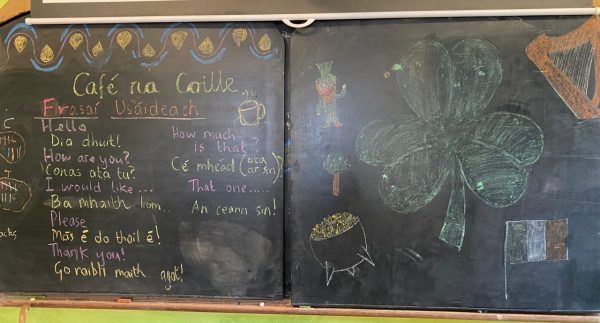 Café na Coille
Frásaí Úsáideach
Hello
Dia dhuit!
How are you?
Conas atá tú?
I would like...
Ba mhaith liom..
Please
Más é do thoil é!
Thank you!
Go raibh maith agat!
How much is that?
Cé mhéad (atá ar sin)?
That one.....
An ceann sin!